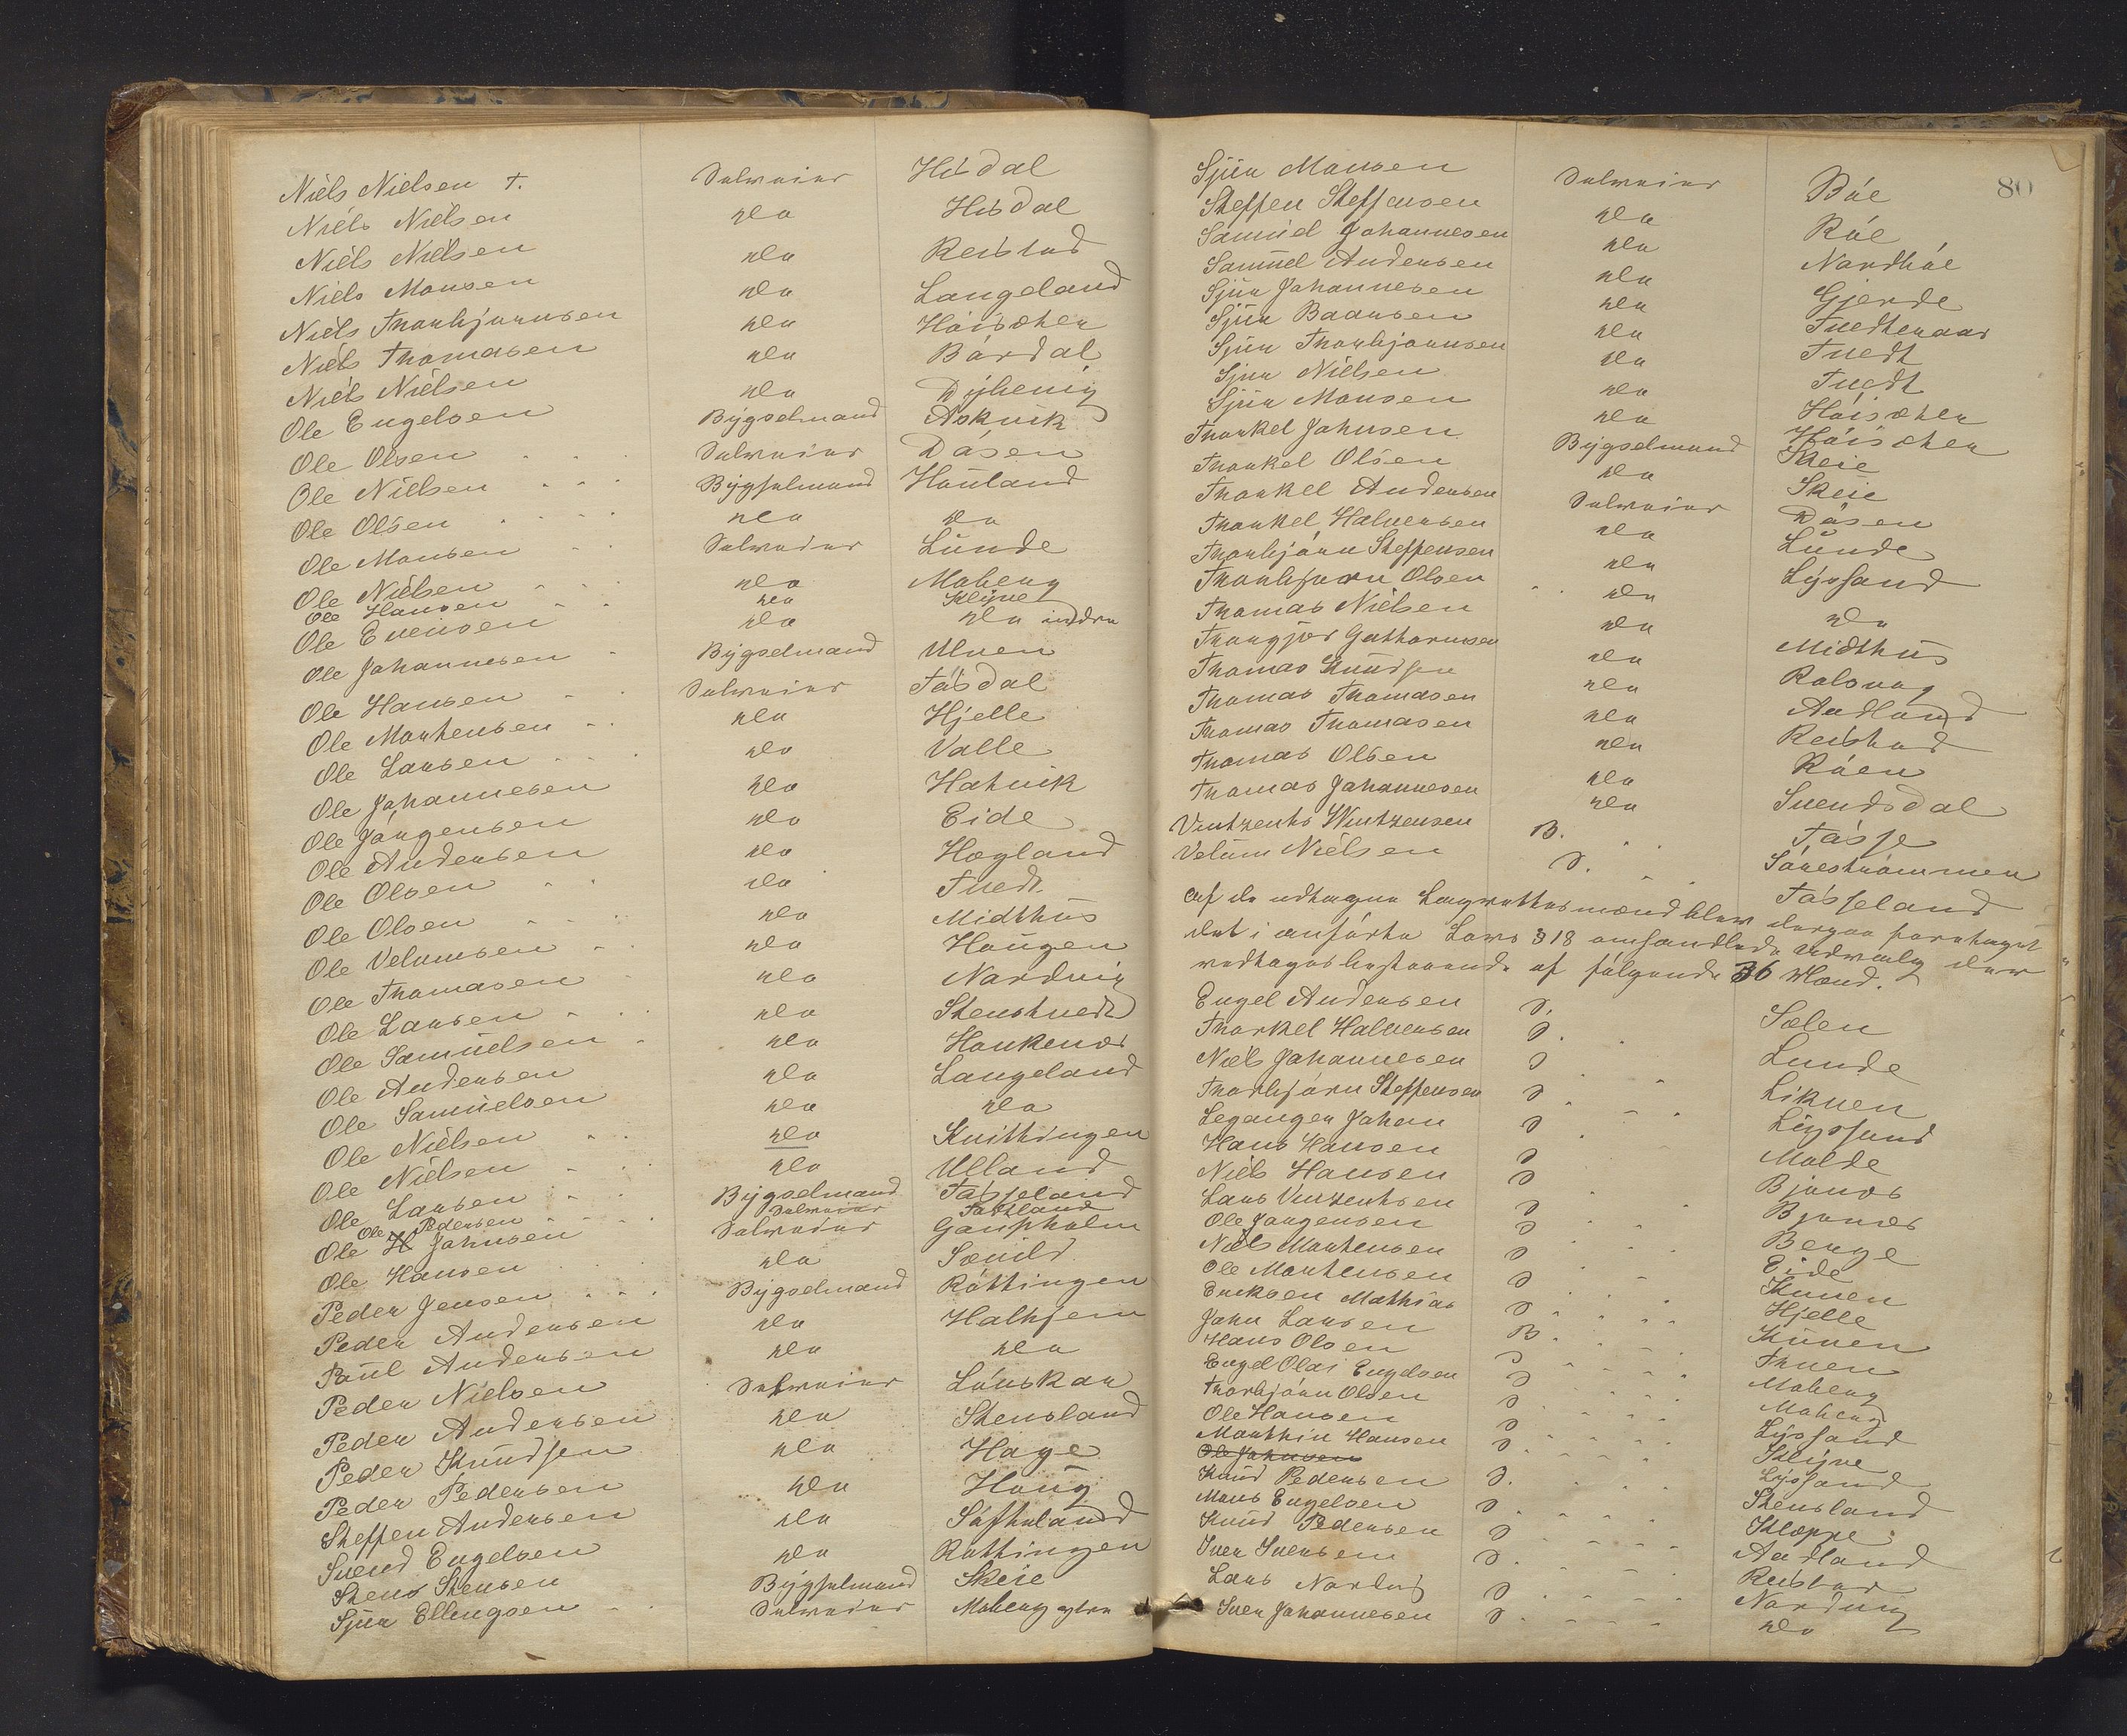 Niels Nielsen †. Selveier Hisdal
Niels Nielsen do Hisdal
Niels Nielsen do Reistad
Niels Monsen do Langeland
Niels Thorbjørnsen do Høisæter
Niels Thomasen do Børdal
Niels Nielsen do Dyhevig
Ole Engelsen Bygselmand Askvik
Ole Olsen Selveier Døsen
Ole Nielsen Bygselmand Houland
Ole Olsen do do
Ole Monsen Selveier Lunde
Ole Nielsen do Moberg
Ole Hansen do Klyve
Ole Evensen do do indre
Ole Johannesen Bygselmand Ulven
Ole Hansen Selveier Tøsdal
Ole Mortensen do Hjelle
Ole Larsen do Valle
Ole Johannesen do Hatvik
Ole Jørgensen do Eide
Ole Andersen do Hægland
Ole Olsen do Tvedt
Ole Olsen do Midthus
Ole Velomsen do Hougen
Ole Thomasen do Nordvig
Ole Larsen do Stenstvedt
Ole Samuelsen do Haukenæs
Ole Andersen do Langeland
Ole Samuelsen do do
Ole Nielsen do Kuithingen
Ole Nielsen do Ulland
Ole Larsen Bygselmand Tøsseland
Ole Pedersen Selveier
Ole H Johnsen Selveier Gaupholm
Ole Hansen do Sævild
Peder Jensen Bygselmand Røttingen
Peder Andersen do Halhjem
Poul Andersen do do
Peder Nielsen Selveier Lønskar
Peder Andersen do Stensland
Peder Knudsen do Hage
Peder Pedersen do Houg
Steffen Andersen do Søfteland
Svend Engelsen do Røttingen
Stens Stensen Bygselmand Skeie
Sjur Ellingsen Selveier Moberg ytre
80
Sjur Monsen Selveier Bøe
Steffen Steffensen do Røe
Samuel Johannesen do Nordbøe
Samuel Andersen do Gjerde
Sjur Johannesen do Tvedteraas
Sjur Baarsen do Tvedt
Sjur Thorbjørnsen do Tvedt
Sjur Nielsen do Høisæter
Sjur Monsen do Høisæter
Thorkel Johnsen Bygselmand Skeie
Thorkel Olsen do Skeie
Thorkel Andersen Selveier Døsen
Thorkel Halversen do Lunde
Thorbjørn Steffensen do Lyssand
Thorbjørn Olsen do do
Thomas Nielsen do Midthus
Thorgjer Guthormsen do Rolsvag
Thomas Knudsen do Aadland
Thomas Thomasen do Reistad
Thomas Thomasen do Røen
Thomas Olsen do Svendsdal
Thomas Johannesen do Tøsse
Ventzents Wentzensen B. Sørestrømmen
Velum Nielsen S. Tøsseland
Af de udtagne Lagrettesmænd blev derpaa foretaget
det i anførte Lovs § 18 omhandlede Udvalg der
vedtages bestaaende af følgende 36 Mænd.
Engel Andersen S. Sælen
Thorkel Halversen S. Lunde
Niels Johannesen S Liknen
Thorbjørn Steffensen S Lyssand
Legangen Johan S Molde
Hans Hansen S Bjønæs
Niels Hansen S Bjønæs
Lars Vinzentsen S Berge
Ole Jørgensen S Eide
Niels Mortensen S Kuven
Ole Mortensen S Hjelle
Eriksen Mathias S Kuven
John Larsen B. Thuen
Hans Olsen S Moberg
Engel Olai Engelsen S Moberg
Thorbjørn Olsen S Lyssand
Ole Hansen S Klyve
Marthin Hansen S Lyssand
Ole Johnsen
Knud Pedersen S. Stensland
Mons Engelsen S Kloppe
Knud Pedersen S Aadland
Iver Iversen S. Reistad
Lars Nordvig S Nordvig
Iver Johannesen S do